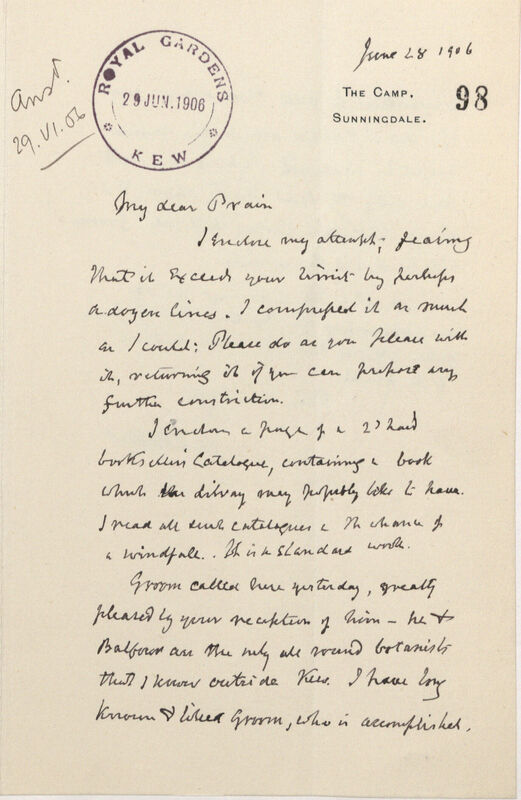 June 28 1906
ROYAL GARDENS
29 JUN. 1906
KEW
Ansd.
29.VI.06
THE CAMP,
SUNNINGDALE.
98
My dear Prain
I enclose my attempt; fearing
that it exceeds your limit by perhaps
a dozen lines. I compressed it as much
as I could: Please do as you please with
it, returning it if you can propose any
further constriction.
I enclose a page of a 2d hand
booksellers Catalogue, containing a book
which the library may possibly like to have.
I read all such catalogues on the chance of
a windfall. It is a standard work.
Groom called here yesterday, greatly
pleased by your reception of him – he &
Balfour are the only all round botanists
that I know outside Kew. I have long
known & liked Groom, who is accomplished.